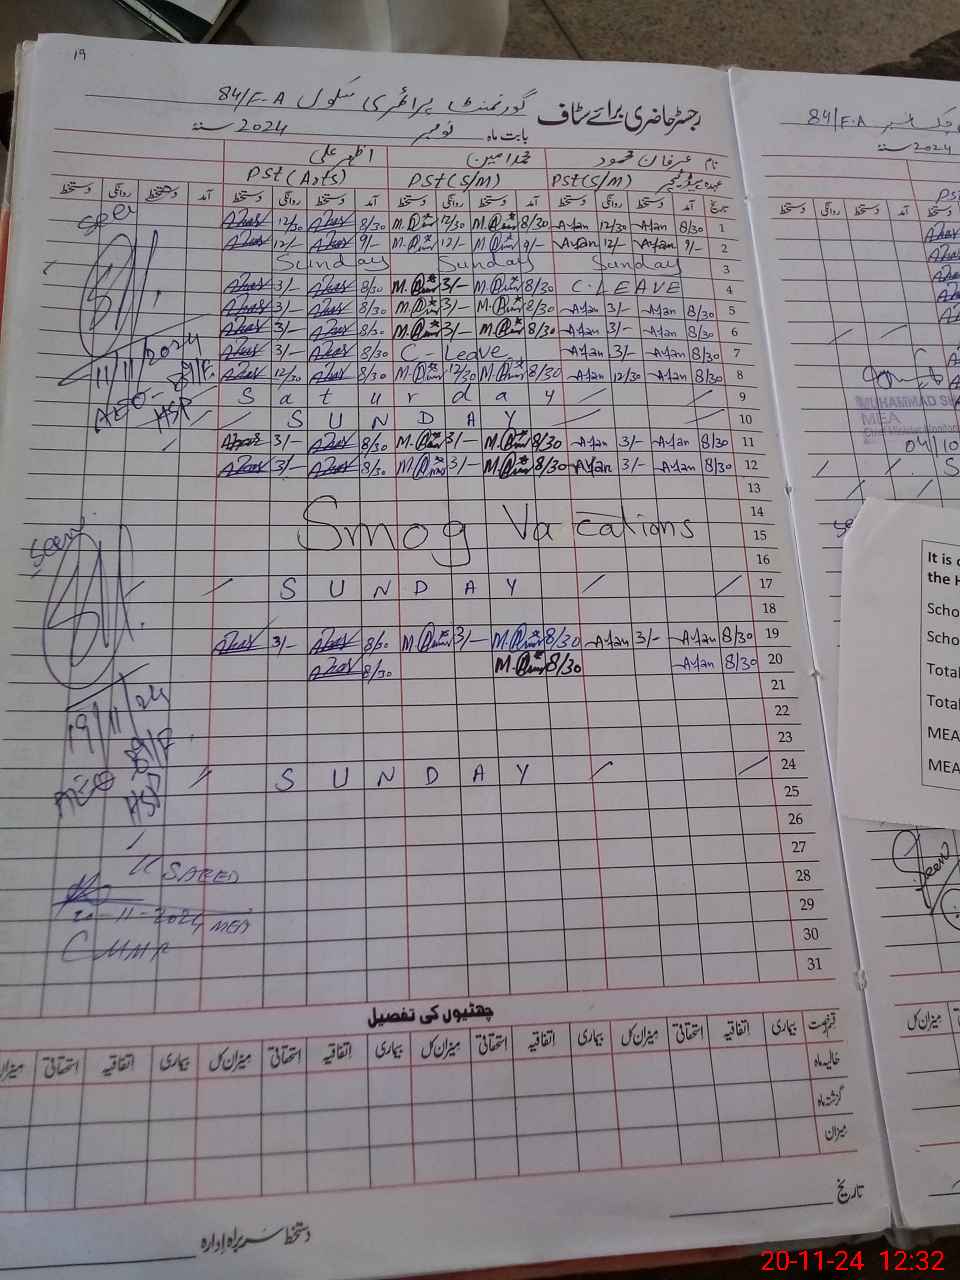 19
رجسٹر حاضری برائے سٹاف گورنمنٹ پرائمری سکول 84/F.A
بابت ماہ نومبر 2024 سنہ
نام عرفان محمود محمد امین اظہر علی
عہدہ PST(S/M) PST(S/M) PST(Arts)
تاریخ آمد دستخط روانگی دستخط آمد دستخط روانگی دستخط آمد دستخط روانگی دستخط آمد دستخط روانگی دستخط
Azhar 12/30 Azhar 8/30 M.Amin 12/30 M.Amin 8/30 Afan 12/30 Afan 8/30 1
Azhar 12/- Azhar 9/- M.Amin 12/- M.Amin 9/- Afan 12/- Afan 9/- 2
Sunday Sunday Sunday 3
Azhar 3/- Azhar 8/30 M.Amin 3/- M.Amin 8/30 C-LEAVE 4
Azhar 3/- Azhar 8/30 M.Amin 3/- M.Amin 8/30 Afan 3/- Afan 8/30 5
Azhar 3/- Azhar 8/30 M.Amin 3/- M.Amin 8/30 Afan 3/- Afan 8/30 6
Azhar 3/- Azhar 8/30 C-Leave Afan 3/- Afan 8/30 7
Azhar 12/30 Azhar 8/30 M.Amin 12/30 M.Amin 8/30 Afan 12/30 Afan 8/30 8
Saturday 9
SUNDAY 10
Azhar 3/- Azhar 8/30 M.Amin 3/- M.Amin 8/30 Afan 3/- Afan 8/30 11
Azhar 3/- Azhar 8/30 M.Amin 3/- M.Amin 8/30 Afan 3/- Afan 8/30 12
13
14
Smog Vacations 15
16
SUNDAY 17
18
Azhar 3/- Azhar 8/30 M.Amin 3/- M.Amin 8/30 Afan 3/- Afan 8/30 19
Azhar 8/30 M.Amin 8/30 Afan 8/30 20
21
22
23
SUNDAY 24
25
26
27
28
29
30
31
seen
11/11/2024
AEO
HSP
seen
19/11/24
AEO
HSP
SAEED
20-11-2024 MEA
چھٹیوں کی تفصیل
قسم رخصت بیماری اتفاقیہ استحقاقی میزان کل بیماری اتفاقیہ استحقاقی میزان کل بیماری اتفاقیہ استحقاقی میزان کل بیماری اتفاقیہ استحقاقی میزان
حالیہ ماہ
گزشتہ ماہ
میزان
تاریخ
دستخط سربراہ ادارہ
84/F.A
2024 سنہ
دستخط روانگی دستخط آمد دستخط
MUHAMMAD
MEA
04/10
It is
the H
Scho
Scho
Total
Total
MEA
MEA
Seen
میزان کل
20-11-24 12:32